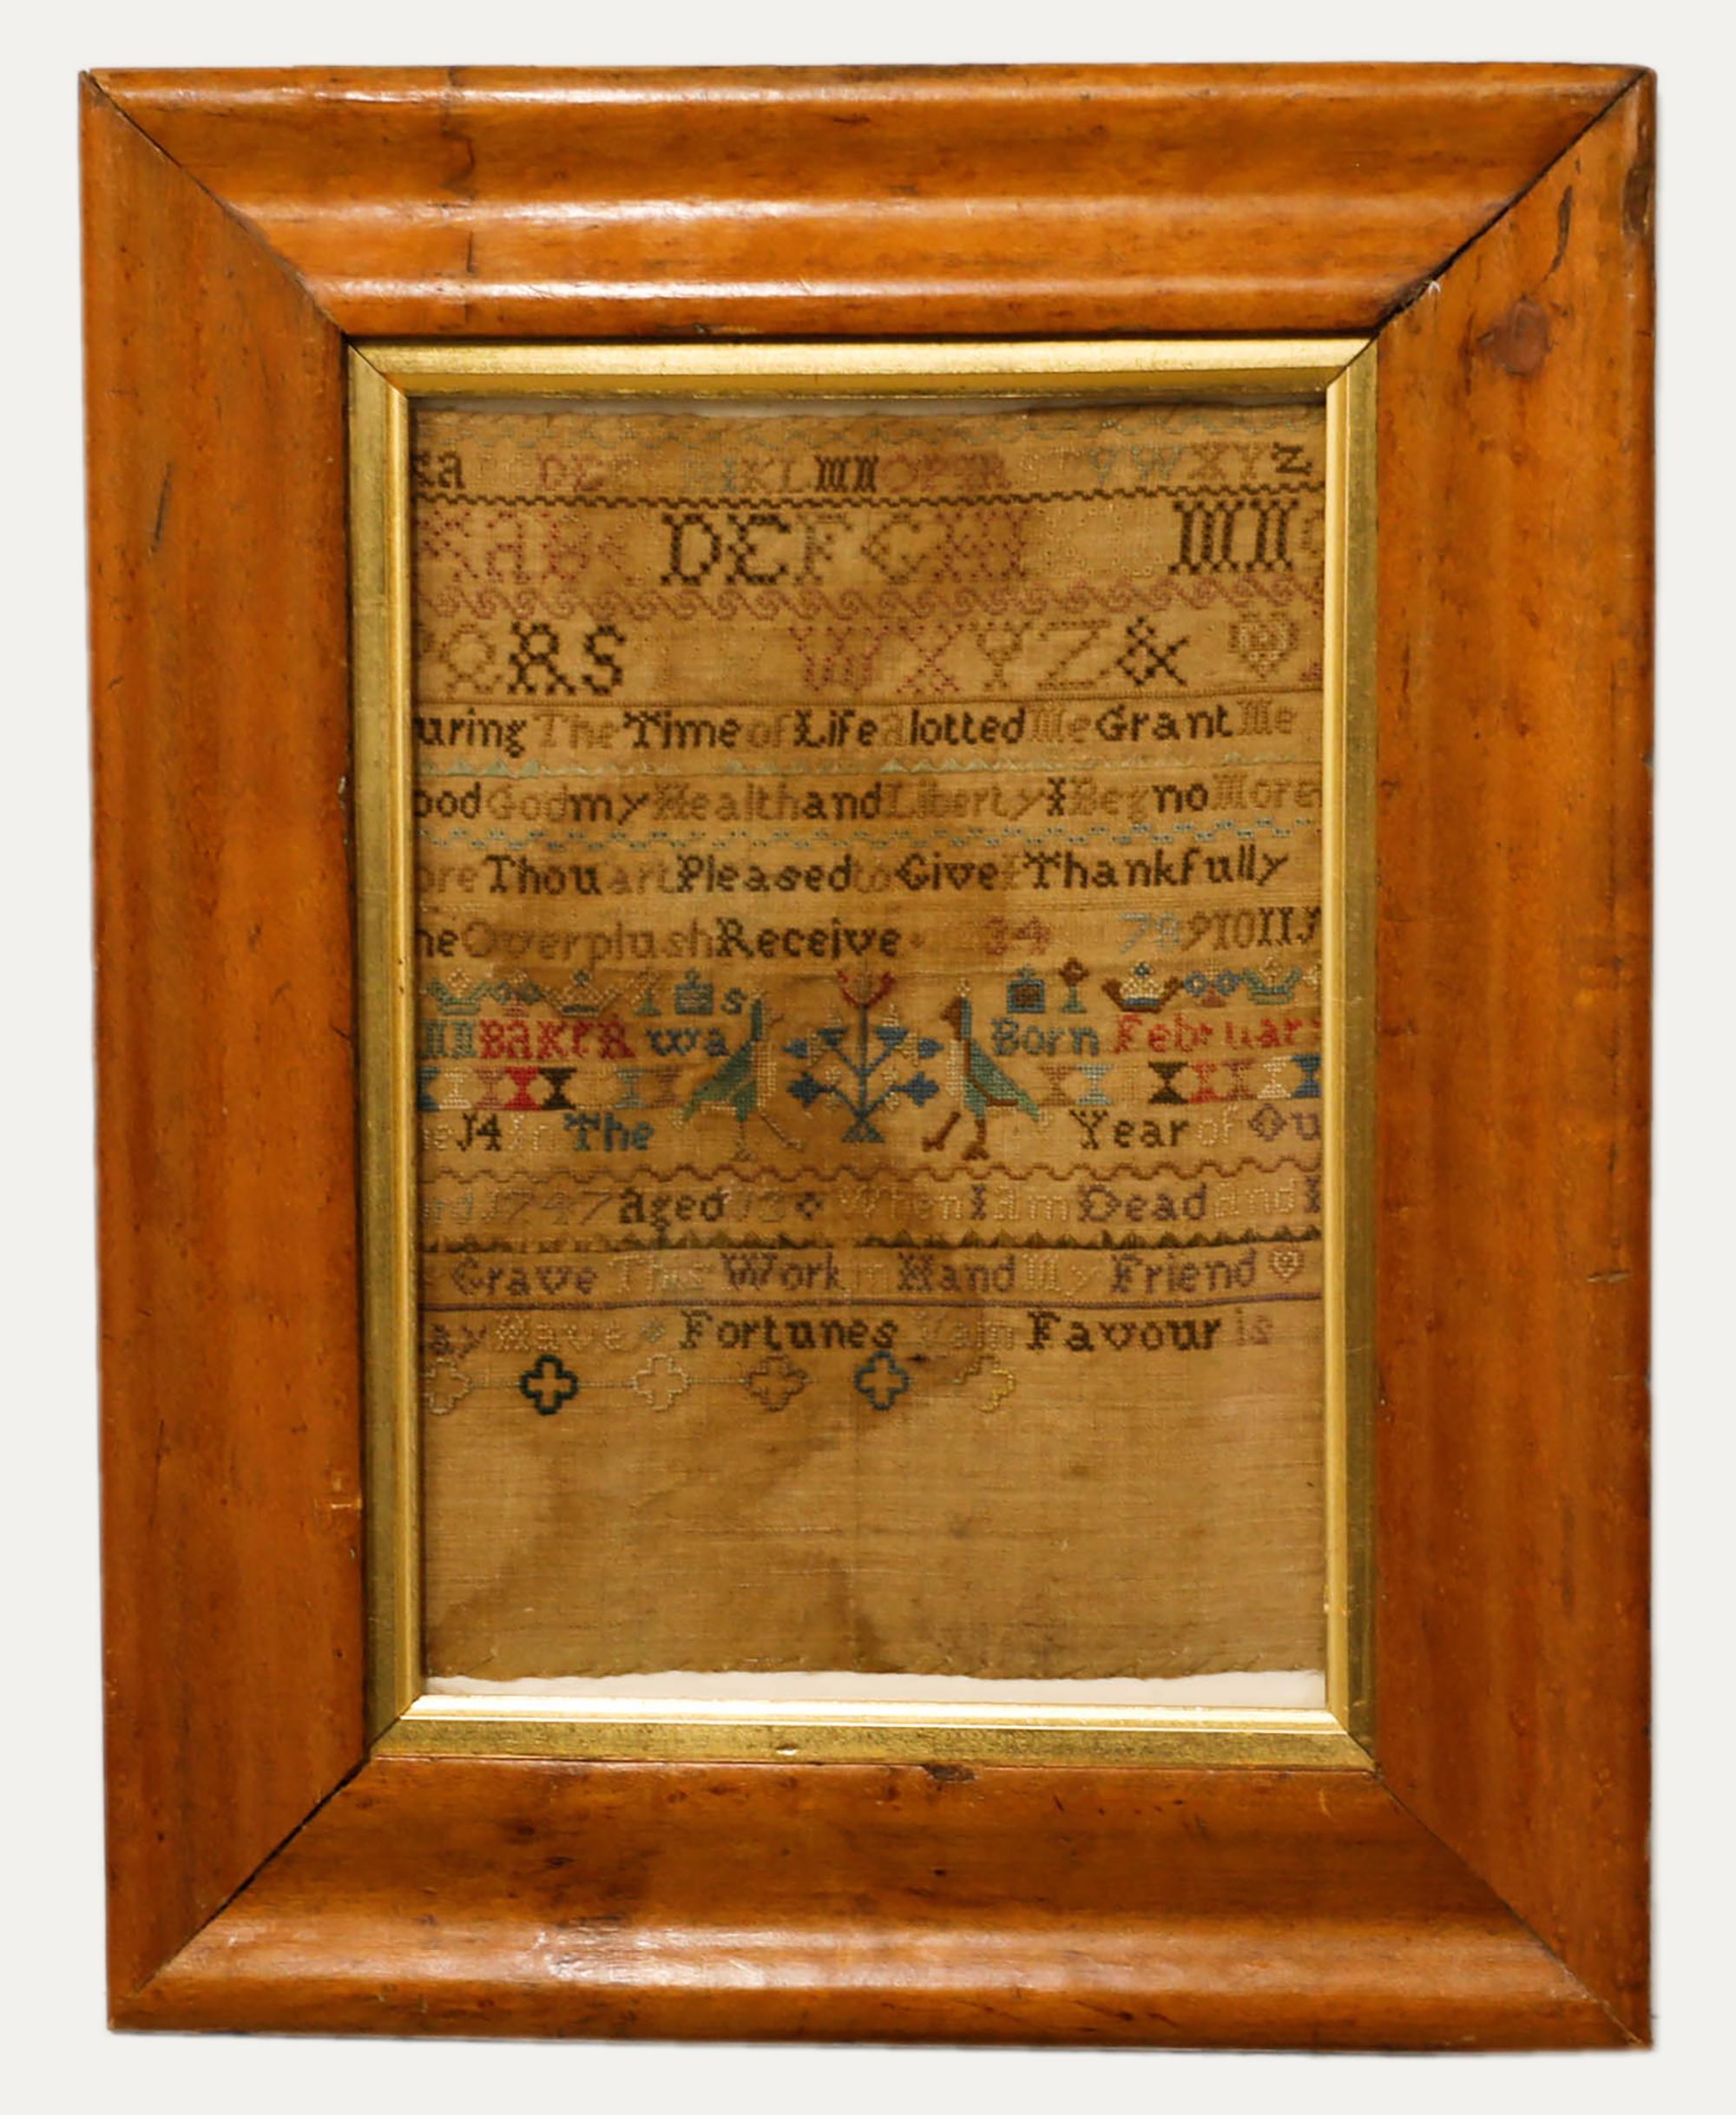 a DE IKLMNOPQR VWXYZ
aB DEFGHI MN
QRS WXYZ&
uring The Time of Life alotted Me Grant Me
ood God my Health and Liberty I Beg no More
ore Thou art Pleased to Give I Thankfully
he Overplush Receive 34 78910II
s
NN BAKER wa Born Februar
e J4 in The Year of Ou
ord 1747 aged J3 When I am Dead and I
Grave This Work in Hand My Friend
ay Have Fortunes Vain Favour is